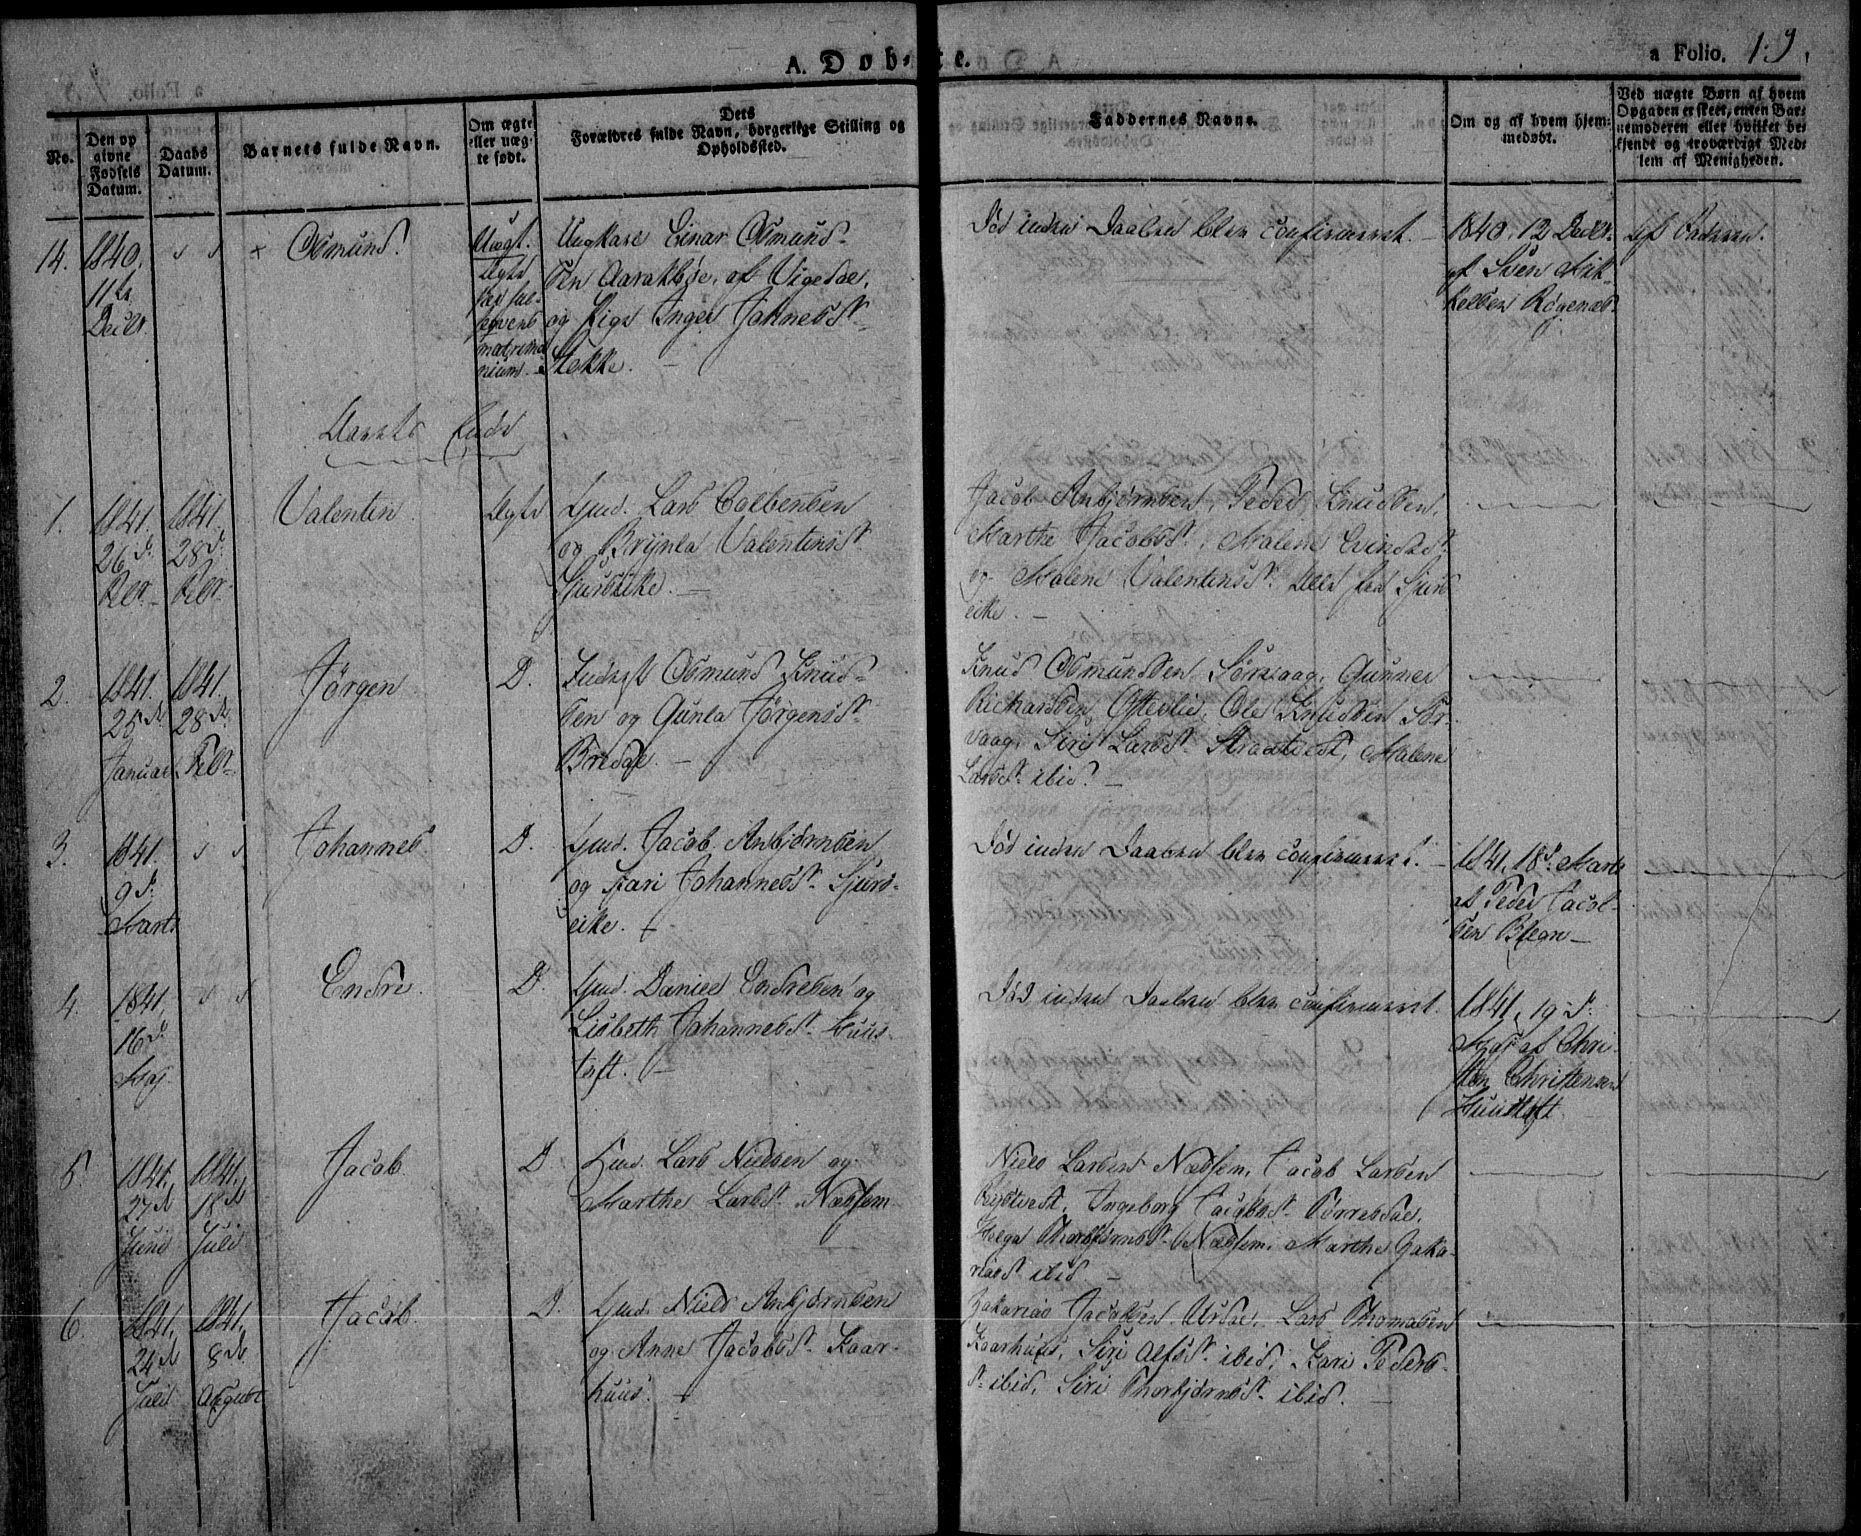 A. Døbte.
a Folio. 19.
No.
Den op
givne
Fødsels
Datum.
Daabs
Datum.
Barnets fulde Navn.
Om ægte
eller uæg-
te født.
Dets
Forældres fulde Navn, borgerlige Stilling og
Opholdssted.
Faddernes Navne.
Om og af hvem hjem-
medøbt.
Ved uægte Børn af hvem
Opgaven er skeet, enten Bar-
nemoderen eller hvilket be-
kjendt og troværdigt Med-
lem af Menigheden.
14.
1840.
11te
Decbr.
Osmund.
Uægt.
Ægte
per
matrimo
nium.
Ungkarl Einar Osmund-
sen Aarakbøe, af Vigedal,
og Pige Inger Johnesd.
Stokke.
Død inden Daaben blev confirmeret.
1840, 12 Decbr.
af Sven Mik-
kelsen Røgenæs.
af Faderen.
Aarets Ende
1.
1841.
26 d.
Febr.
1841.
28 d.
Febr.
Valentin.
Ægte
Gmd. Lars Colbensen
og Brynla Valentinsd.
Sjurseike.
Jacob Anbjørnsen, Peder Knudsen,
Marthe Jacobsd., Malene Eindsd.
og Malene Valentinsd. alle fra Sjurs
eike.
2.
1841.
25 d.
Januar
1841.
28 d.
Febr.
Jørgen
D.
Inderst Osmund Knud-
sen og Gunla Jørgensd.
Bredal.
Knud Osmundsen Sørvaag, Gunner
Richardsen Øfterlie, Ole Knudsen Sør-
vaag, Siri Larsd. Straatvedt, Malene
Larsd. ibid.
3.
1841.
9 d.
Marts
Johannes
D.
Gmd. Jacob Anbjørnsen
og Kari Johannesd. Sjurs-
eike.
Død inden Daaben blev confirmeret.
1841, 18 d. Marts
af Peder Jacob-
sen Blegn
4.
1841.
16 d.
Maj.
Endre.
D.
Gmd. Daniel Endresen og
Lisbeth Johannesd. Huus-
toft.
Død inden Daaben blev confirmeret.
1841, 19 d.
Maj af Chri-
sten Christensen
Huustoft
5.
1841.
27 d.
Juni
1841.
18 d.
Juli
Jacob.
D.
Gmd. Lars Nielsen og
Marthe Larsd. Næsjem
Niels Larsen Næsjem, Jacob Larsen
Ingeborg Jacobsd. Tørresdal,
Helga Thorbjørnsd. Næsjem, Marthe Zaka-
riasd. ibid.
6.
1841.
24 d.
Juli
1841.
8 d.
August
Jacob.
D.
Gmd. Niels Anbjørnsen
og Anne Jacobsd. Kaar-
huus.
Zakarias Jacobsen Urdal, Lars Thomasen
Kaarhuus, Siri Alfsd. ibid, Kari Peders-
d. ibid, Siri Thorbjørnsd. ibid.